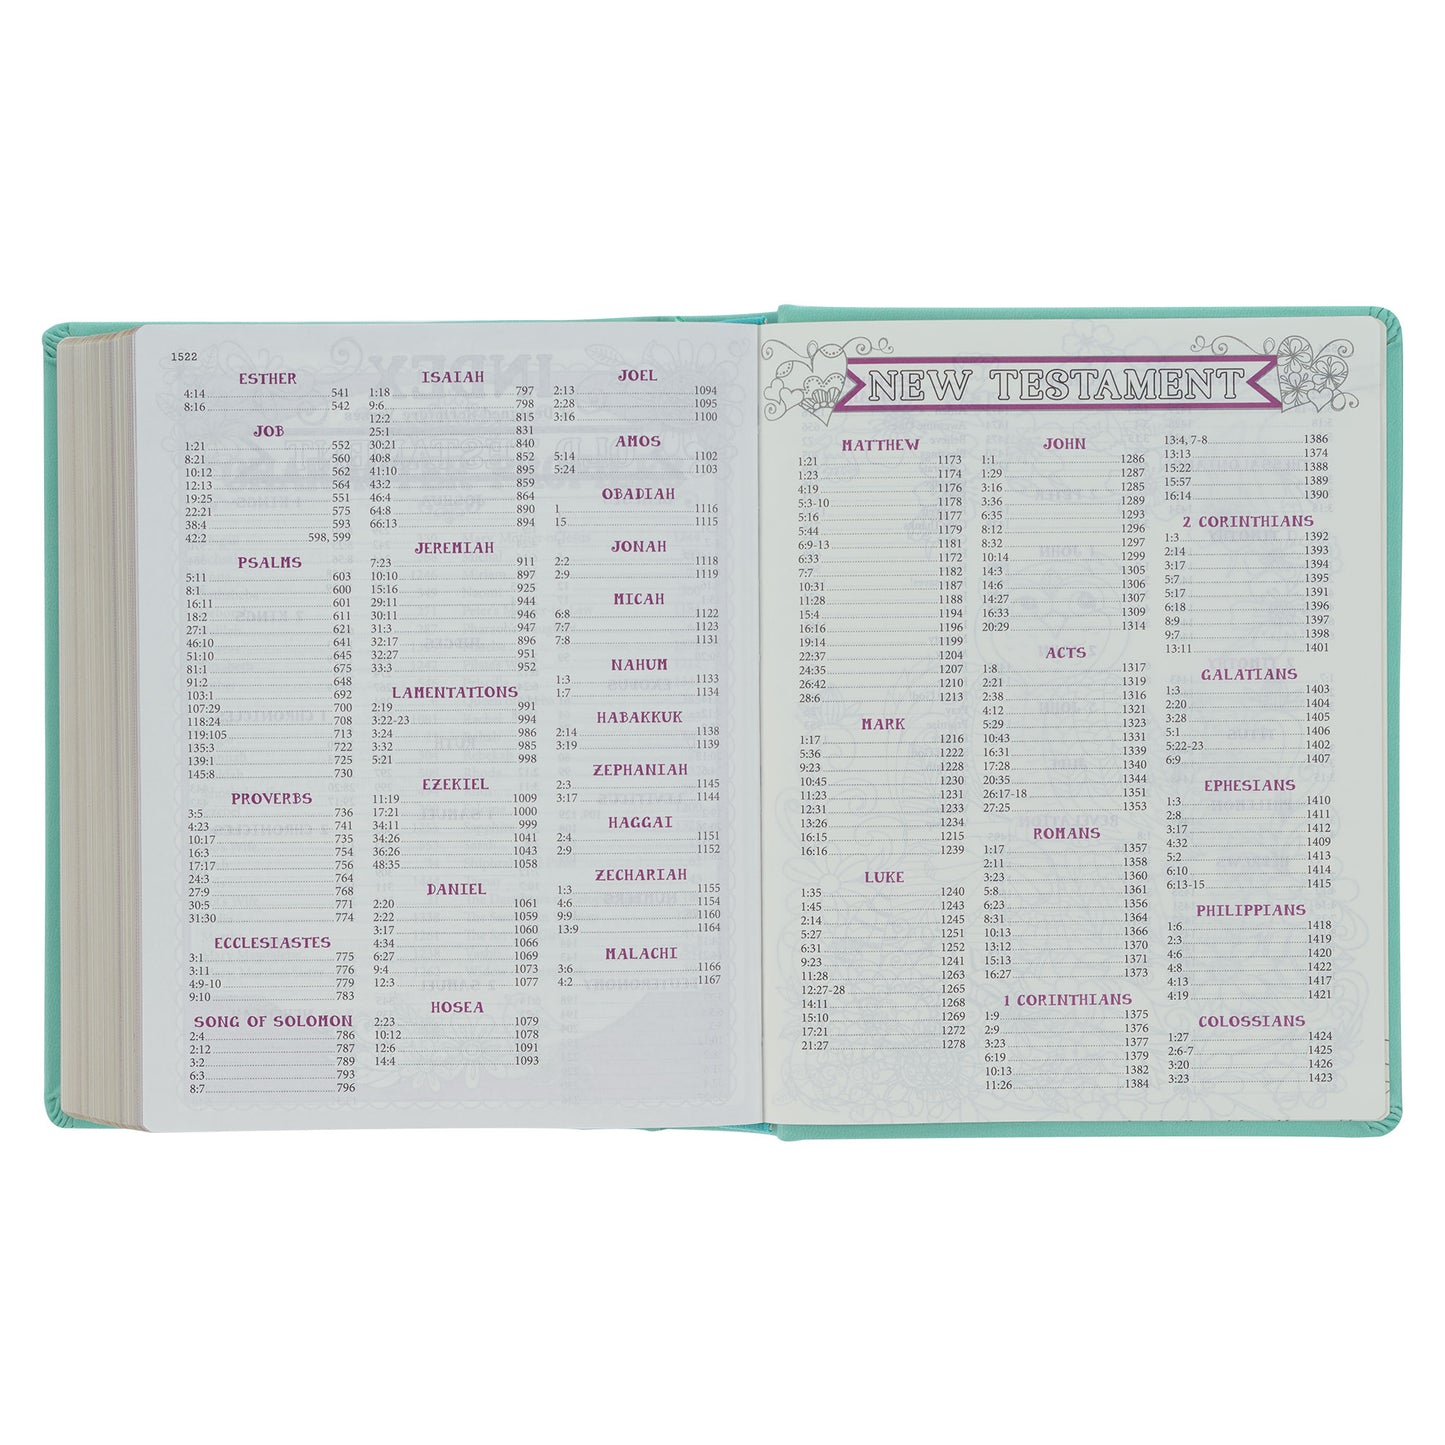 1522
ESTHER
4:14 541
8:16 542
JOB
1:21 552
8:21 560
10:12 562
12:13 564
19:25 551
22:21 575
38:4 593
42:2 598, 599
PSALMS
5:11 603
8:1 600
16:11 601
18:2 611
27:1 621
46:10 641
51:10 645
81:1 675
91:2 648
103:1 692
107:29 700
118:24 708
119:105 713
135:3 722
139:1 725
145:8 730
PROVERBS
3:5 736
4:23 741
10:17 735
16:3 754
17:17 756
24:3 764
27:9 768
30:5 771
31:30 774
ECCLESIASTES
3:1 775
3:11 776
4:9-10 779
9:10 783
SONG OF SOLOMON
2:4 786
2:12 787
3:2 789
6:3 793
8:7 796
ISAIAH
1:18 797
9:6 798
12:2 815
25:1 831
30:21 840
40:8 852
41:10 895
43:2 859
46:4 864
64:8 890
66:13 894
JEREMIAH
7:23 911
10:10 897
15:16 925
29:11 944
30:11 946
31:3 947
32:17 896
32:27 951
33:3 952
LAMENTATIONS
2:19 991
3:22-23 994
3:24 986
3:32 985
5:21 998
EZEKIEL
11:19 1009
17:21 1000
34:11 999
34:26 1041
36:26 1043
48:35 1058
DANIEL
2:20 1061
2:22 1059
3:17 1060
4:34 1066
6:27 1069
9:4 1073
12:3 1077
HOSEA
2:23 1079
10:12 1078
12:6 1091
14:4 1093
JOEL
2:13 1094
2:28 1095
3:16 1100
AMOS
5:14 1102
5:24 1103
OBADIAH
1 1116
15 1115
JONAH
2:2 1118
2:9 1119
MICAH
6:8 1122
7:7 1123
7:8 1131
NAHUM
1:3 1133
1:7 1134
HABAKKUK
2:14 1138
3:19 1139
ZEPHANIAH
2:3 1145
3:17 1144
HAGGAI
2:4 1151
2:9 1152
ZECHARIAH
1:3 1155
4:6 1154
9:9 1160
13:9 1164
MALACHI
3:6 1166
4:2 1167
NEW TESTAMENT
MATTHEW
1:21 1173
1:23 1174
4:19 1176
5:3-10 1178
5:16 1177
5:44 1179
6:9-13 1181
6:33 1172
7:7 1182
10:31 1187
11:28 1188
15:4 1194
16:16 1196
19:14 1199
22:37 1204
24:35 1207
26:42 1210
28:6 1213
MARK
1:17 1216
5:36 1222
9:23 1228
10:45 1230
11:23 1231
12:31 1233
13:26 1234
16:15 1215
16:16 1239
LUKE
1:35 1240
1:45 1243
2:14 1245
5:27 1251
6:31 1252
9:23 1241
11:28 1263
12:27-28 1265
14:11 1268
15:10 1269
17:21 1272
21:27 1278
JOHN
1:1 1286
1:29 1287
3:16 1285
3:36 1289
6:35 1293
8:12 1296
8:32 1297
10:14 1299
14:3 1305
14:6 1306
14:27 1307
16:33 1309
20:29 1314
ACTS
1:8 1317
2:21 1319
2:38 1316
4:12 1321
5:29 1323
10:43 1331
16:31 1339
17:28 1340
20:35 1344
26:17-18 1351
27:25 1353
ROMANS
1:17 1357
2:11 1358
3:23 1360
5:8 1361
6:23 1356
8:31 1364
10:13 1366
13:12 1370
15:13 1371
16:27 1373
1 CORINTHIANS
1:9 1375
2:9 1376
3:23 1377
6:19 1379
10:13 1382
11:26 1384
13:4, 7-8 1386
13:13 1374
15:22 1388
15:57 1389
16:14 1390
2 CORINTHIANS
1:3 1392
2:14 1393
3:17 1394
5:7 1395
5:17 1391
6:18 1396
8:9 1397
9:7 1398
13:11 1401
GALATIANS
1:3 1403
2:20 1404
3:28 1405
5:1 1406
5:22-23 1402
6:9 1407
EPHESIANS
1:3 1410
2:8 1411
3:17 1412
4:32 1409
5:2 1413
6:10 1414
6:13-15 1415
PHILIPPIANS
1:6 1418
2:3 1419
4:6 1420
4:8 1422
4:13 1417
4:19 1421
COLOSSIANS
1:27 1424
2:6-7 1425
3:20 1426
3:23 1423